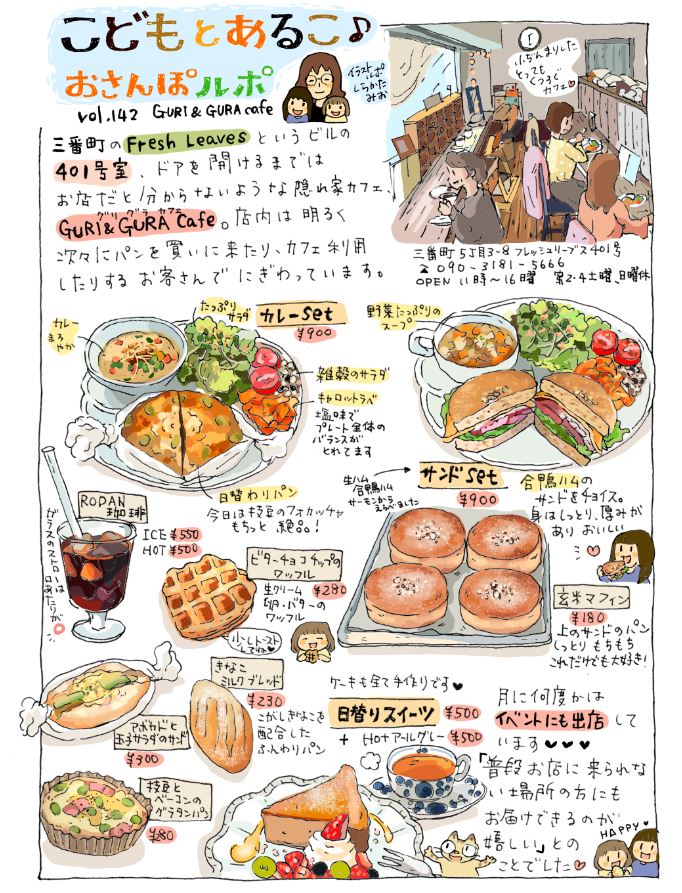 こどもとあるこ♪
おさんぽルポ
vol.142 GURI & GURA cafe
イラストルポ
しらかた
みお
こぢんまりした
とっても
くつろぐ
カフェ♡
三番町のFresh Leavesというビルの
401号室、ドアを開けるまでは
お店だと分からないような隠れ家カフェ、
グリ グラ カフェ
GURI&GURA Cafe。店内は明るく
次々にパンを買いに来たり、カフェ利用
したりするお客さんでにぎわっています。
三番町5丁目3-8 フレッシュリーブス401号
☎090-3181-5666
OPEN 11時〜16時 第2・4土曜、日曜休
カレー
まろやか
たっぷり
サラダ
カレーset
¥900
雑穀のサラダ
キャロットラペ
塩味で
プレート全体の
バランスが
とれてます
日替わりパン
今日は枝豆のフォカッチャ
もちっと 絶品!
野菜たっぷりの
スープ
生ハム
合鴨ハム
サーモンから
えらべました
サンドset
¥900
合鴨ハムの
サンドをチョイス。
身はしっとり、厚みが
あり おいしい
RODAN
珈琲
ICE ¥550
HOT ¥500
ガラスのストローは
口あたりが◎
ビターチョコチップの
ワッフル
生クリーム ¥280
卵・バターの
ワッフル
少しトースト
してね♡
玄米マフィン
¥180
上のサンドのパン
しっとりもちもち
これだけでも大好き!
きなこ
ミルクブレッド
¥230
こがしきなこを
配合した
ふんわりパン
アボカドと
玉子サラダのサンド
¥300
枝豆と
ベーコンの
グラタンパン
¥280
ケーキも全て手作りです♥
日替りスイーツ ¥500
+ Hotアールグレー ¥500
月に何度かは
イベントにも出店して
います♥♥♥
「普段お店に来られな
い場所の方にも
お届けできるのが
嬉しい」との
ことでした♡
HAPPY♥